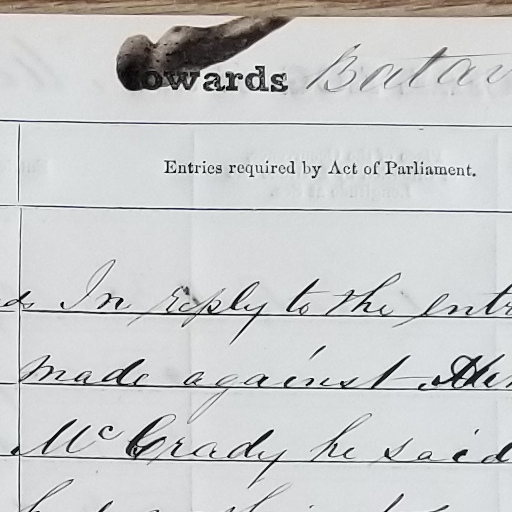 towards Batav
Entries required by Act of Parliament.
In reply to the entr
made against
McCrady he said